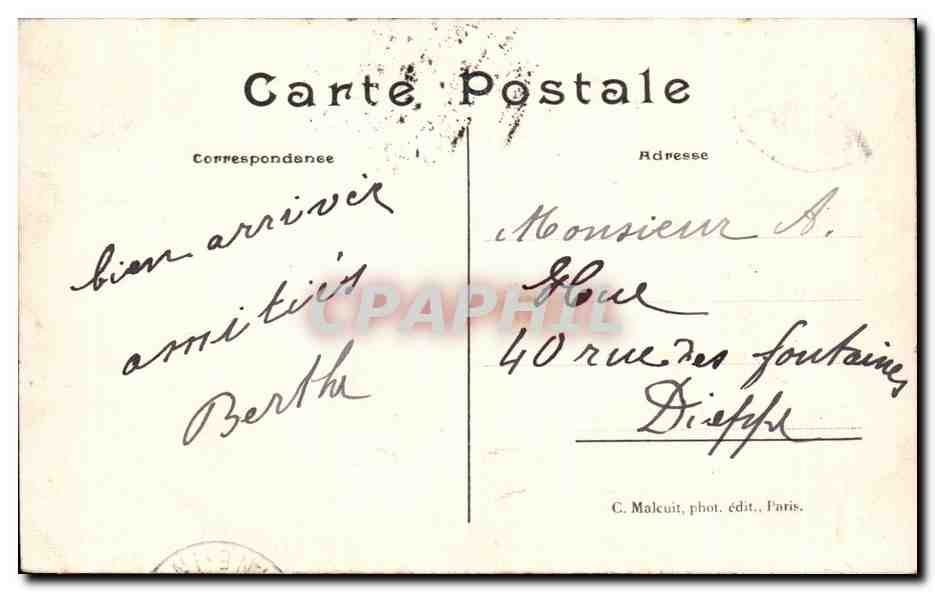 Carte Postale
Correspondance
Adresse
bien arrivée
amitiés
Berthe
Monsieur A.
Hue
40 rue des fontaines
Dieppe
C. Malcuit, phot. édit., Paris.
CPAPHIL